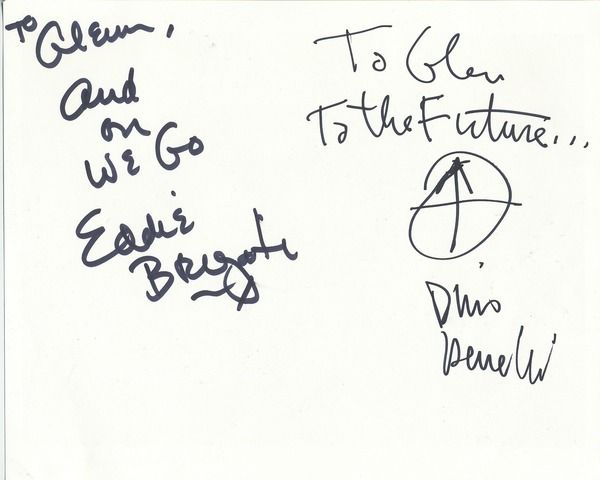 To Glenn,
And
on
WE Go
Eddie
Brigati
To Glen
To the Future...
Dino
Danelli